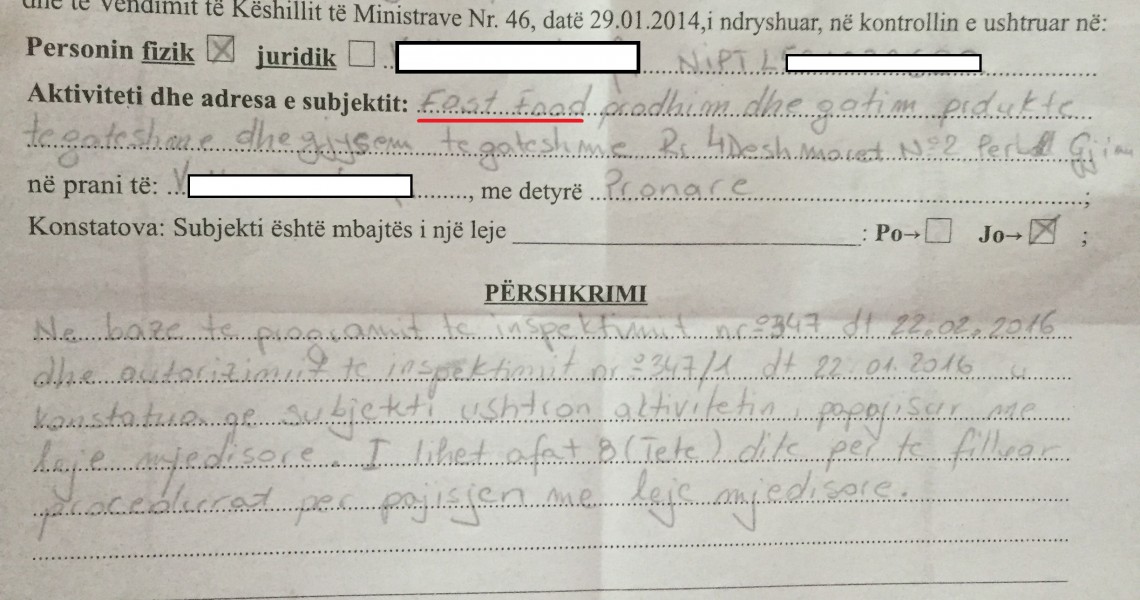 dhe të Vendimit të Këshillit të Ministrave Nr. 46, datë 29.01.2014,i ndryshuar, në kontrollin e ushtruar në:
Personin fizik ☒ juridik ☐ NIPT L
Aktiviteti dhe adresa e subjektit: Fast Food prodhim dhe gatim pidukte
te gateshme dhe gjysem te gateshme Rr 4 Deshmoret Nº2
në prani të: , me detyrë Pronare ;
Konstatova: Subjekti është mbajtës i një leje ____________________ : Po→☐ Jo→☒ ;
PËRSHKRIMI
Ne baze te programit te inspektimit nrº347 dt 22.02.2016
dhe autorizimit te inspektimit nrº347/1 dt 22.01.2016 u
konstatua qe subjekti ushtron aktivitetin, papajisur me
leje mjedisore. I lihet afat 8 (Tete) dite per te filluar
procedurat per pajisjen me leje mjedisore.